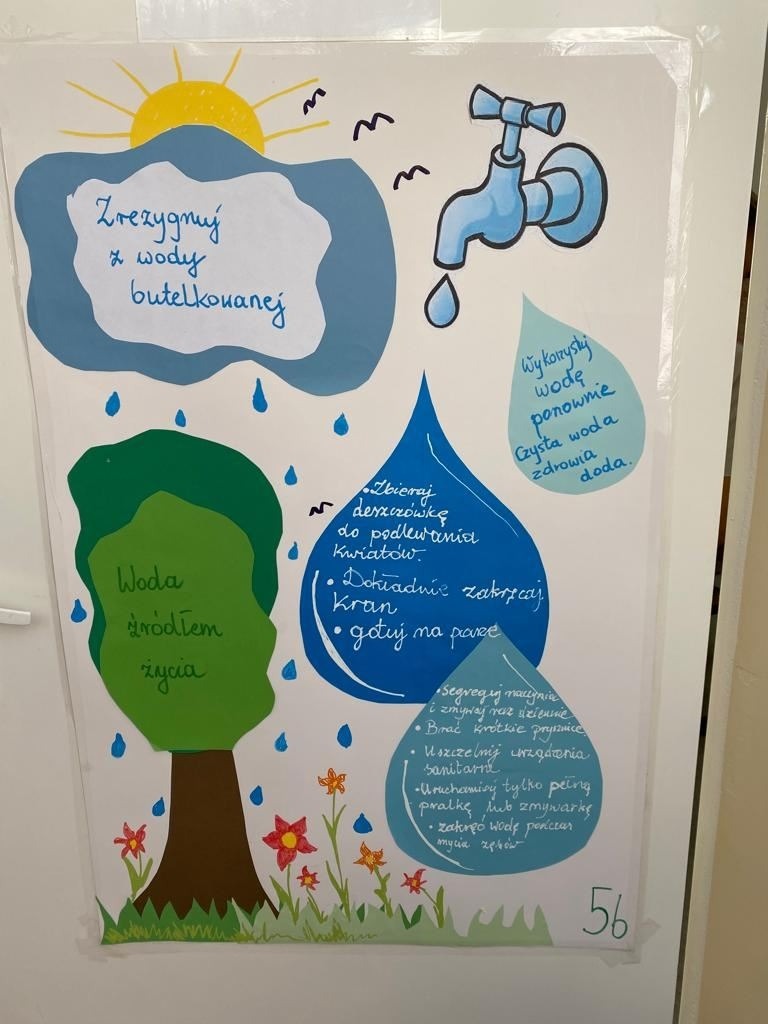 Zrezygnuj
z wody
butelkowanej
Wykorzystuj
wodę
ponownie
Czysta woda
zdrowia
doda.
• Zbieraj
deszczówkę
do podlewania
kwiatów.
• Dokładnie zakręcaj
kran
• gotuj na parze
Woda
źródłem
życia
• Segreguj naczynia
i zmywaj raz dziennie
• Brać krótkie prysznice
• Uszczelnij urządzenia
sanitarne
• Uruchamiaj tylko pełną
pralkę lub zmywarkę
• zakręć wodę podczas
mycia zębów
5b